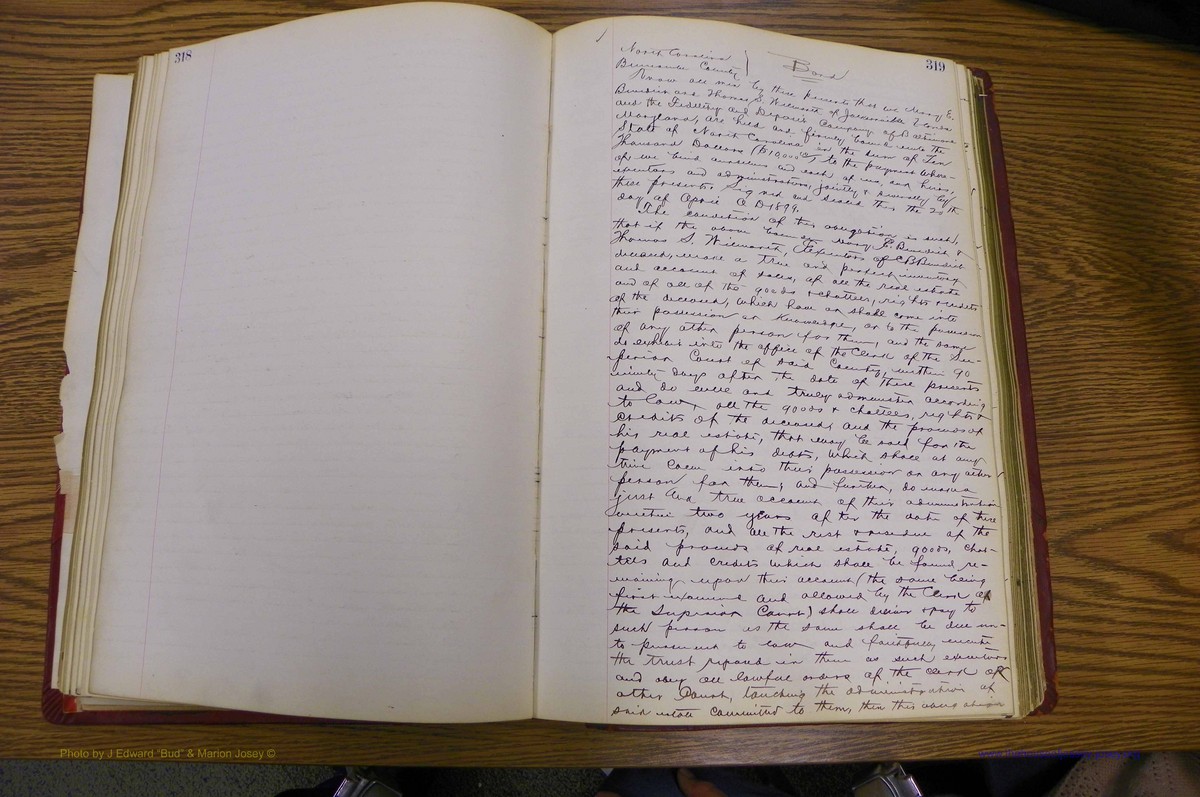 318
319
North Carolina
Buncombe County
Bond
Know all men by these presents that we Mary E.
Burdick and Thomas S. Wilworth of Jacksonville Florida
and the Fidelity and Deposit Company of Baltimore
Maryland, are held and firmly bound unto the
State of North Carolina in the sum of Ten
Thousand Dollars ($10,000 00/) to the payment where-
of we bind ourselves and each of us, our heirs,
executors and administrators, jointly & severally by
these presents. Signed and sealed this the 20th
day of April A D 1899.
The condition of this obligation is such,
that if the above bounden Mary E. Burdick &
Thomas S. Wilworth, Executors of C B Burdick
deceased, make a true and perfect inventory
and account of sales, of all the real estate
and of all of the goods & chattles, rights & credits
of the deceased, which have or shall come into
their possession or knowledge, or to the possession
of any other person for them, and the same
do exhibit into the office of the Clerk of the Su-
perior Court of said County, within 90
ninety days after the date of these presents
and do well and truly administer according
to law, all the goods & chattles, rights &
credits of the deceased, and the proceeds of
his real estate, that may be sold for the
payment of his debts, which shall at any
time come into their possession or any other
person for them; and further, do make a
just and true account of their administration
within two years after the date of these
presents, and all the rest & residue of the
said proceeds of real estate, goods, chat-
tels and credits which shall be found re-
maining upon their account (the same being
first examined and allowed by the Clerk of
the Superior Court) shall deliver & pay to
such person as the same shall be due un-
to pursuant to law and faithfully execute
the trust reposed in them as such executors
and obey all lawful orders of the clerk or
other Court, touching the administration of
said estate committed to them, then this obligation
Photo by J Edward "Bud" & Marion Josey ©